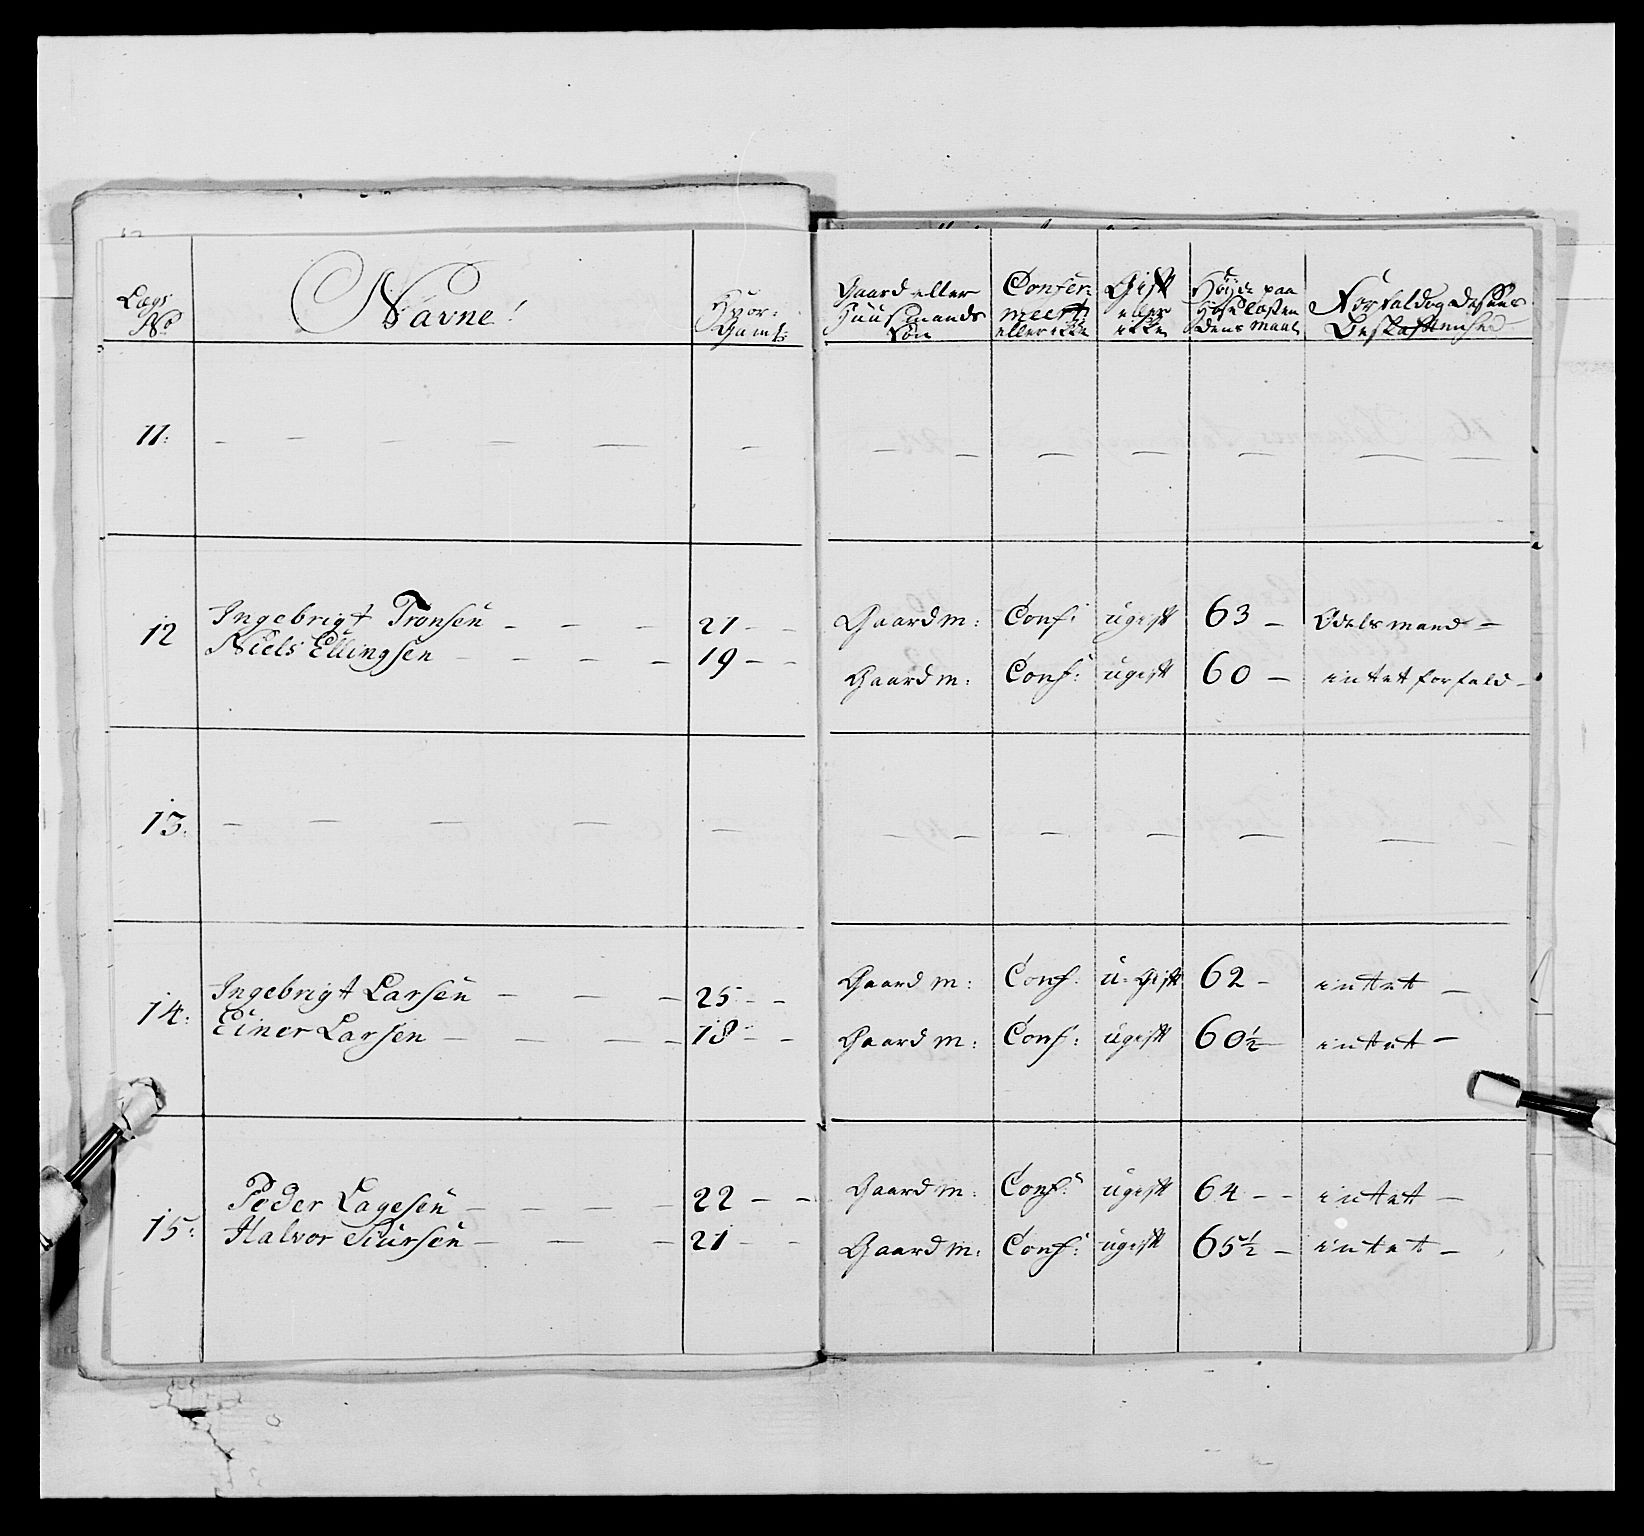 Lægs No | Navne! | Hvor Gaml: | Gaard eller Huusmands Søn | Confer meert: eller ikke | Gift eller ikke | Høyde paa Hose losten Dens Maal | Forfald og Dessens Beskaffenhed
11: — — — — —
12 Ingebrigt Tronsen — — — 21 — — Gaardm: Conf: ugift 63 — Odelsmand —
Niels Ellingsen — — — — 19 — — Gaardm: Conf: ugift 60 — intet forfald —
13. — — — —
14: Ingebrigt Larsen — — — 25 — — Gaardm: Conf: u-gift 62 — intet —
Einer Larsen — — — — 18 — — Gaardm: Conf: ugift 60½ — intet —
15: Peder Lagesen — — — — 22 — — Gaardm: Conf: ugift 64 — — intet —
Halvor Siursen — — — 21 — — Gaardm: Conf: ugift 65½ — intet —